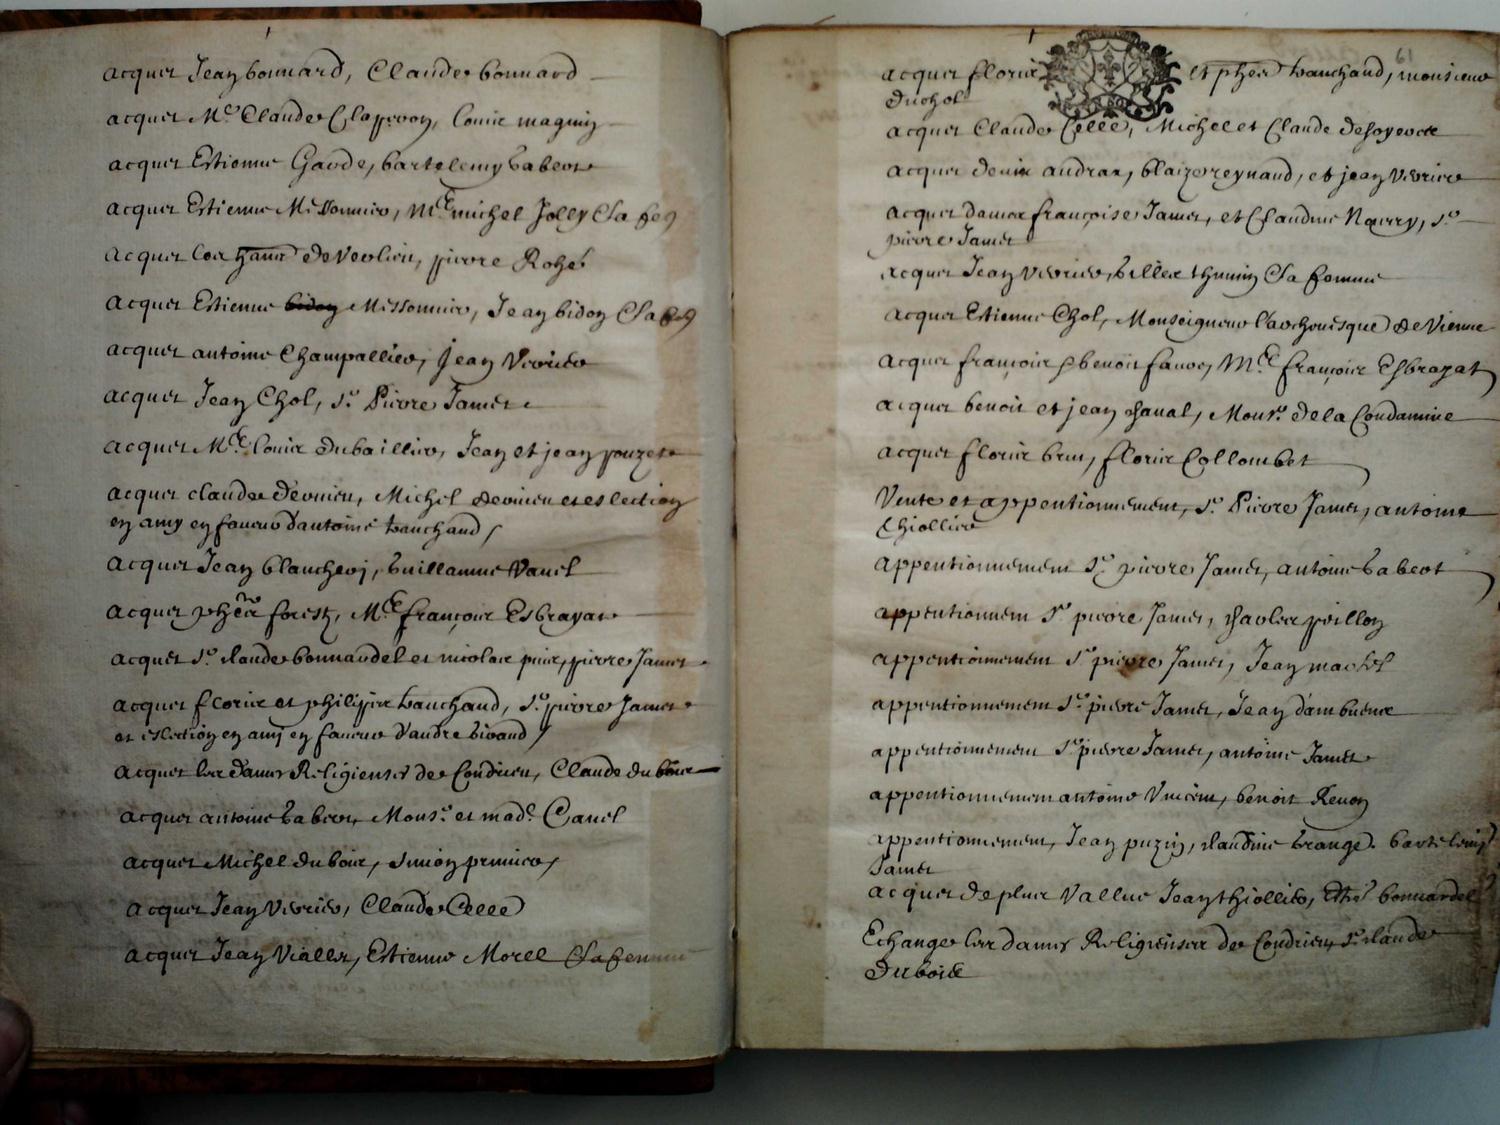 acquet Jean bonnard, Claude bonnard
acquet Me Claude Clapeyron, Louis maguin
acquet Estienne Garde, bartelemy
acquet Estienne Missonnier, Me michel Jolly & sa fe
acquet les de Verlieu, pierre Roze
acquet Estienne bidon Missonnier, Jean bidon & sa
acquet antoine Champallier, Jean Verrier
acquet Jean Chol, Sr. Pierre Jamet
acquet Me Louis dubaillier, Jean et jean pouzet
acquet claude dervieu, Michel dervieu et eslection
en amy en faveur d'antoine vauchand
acquet Jean blanchery, Guillaume Vanel
acquet forest, Me françois Esbrayat
acquet Sr. claude bonnardel et nicolas pierre Jamet
acquet floris et philippe vauchand, Sr. pierre Jamet
et eslection en amy en faveur d'andré
acquet les dames Religieuses de Condrieu, Claude dubois
acquet antoine Monsr. et made Canel
acquet Michel dubois, Simon prunier
acquet Jean Verrier, Claude Celle
acquet Jean Vialles, Estienne Morel & sa femme
19
acquet floris et vauchand, monsieur
duchol
acquet Claude Celle, Michel et Claude
acquet denis audras, blaize reynaud, et jean Verrier
acquet dames françoise Jamet, et Claudine Sr
pierre Jamet
acquet Jean Verrier, & sa femme
acquet Estienne Chol, Monseigneur l'archevesque de Vienne
acquet françois & benoit faure, Me françois Esbrayat
acquet benoit et jean Monsr. de la Condamine
acquet floris brun, floris Collombet
Vente et appentionnement, Sr. Pierre Jamet, antoine
thiollier
appentionnement Sr. pierre Jamet, antoine
appentionnem Sr pierre Jamet, charles peillon
appentionnement Sr pierre Jamet, Jean
appentionnement Sr. pierre Jamet, Jean
appentionnement Sr. pierre Jamet, antoine Jamet
appentionnement antoine Vincent, benoit
appentionnement, Jean puzin, claudine bartelemy
Jamet
acquet de plus Jean thiollier, bonnardel
Echange les dames Religieuses de Condrieu, Sr claude
Dubois